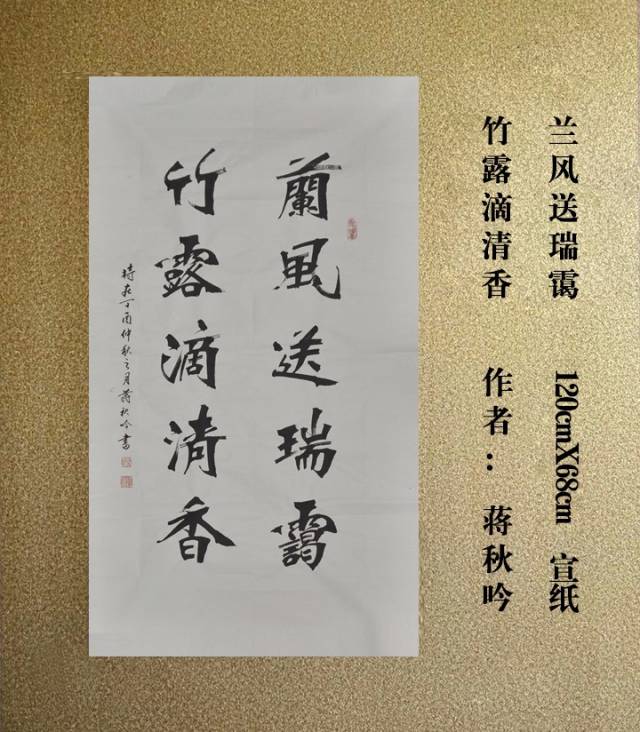 兰风送瑞霭
120cmX68cm 宣纸
竹露滴清香
作者：蒋秋吟
蘭風送瑞靄
竹露滴清香
時在丁酉仲秋之月蒋秋吟書